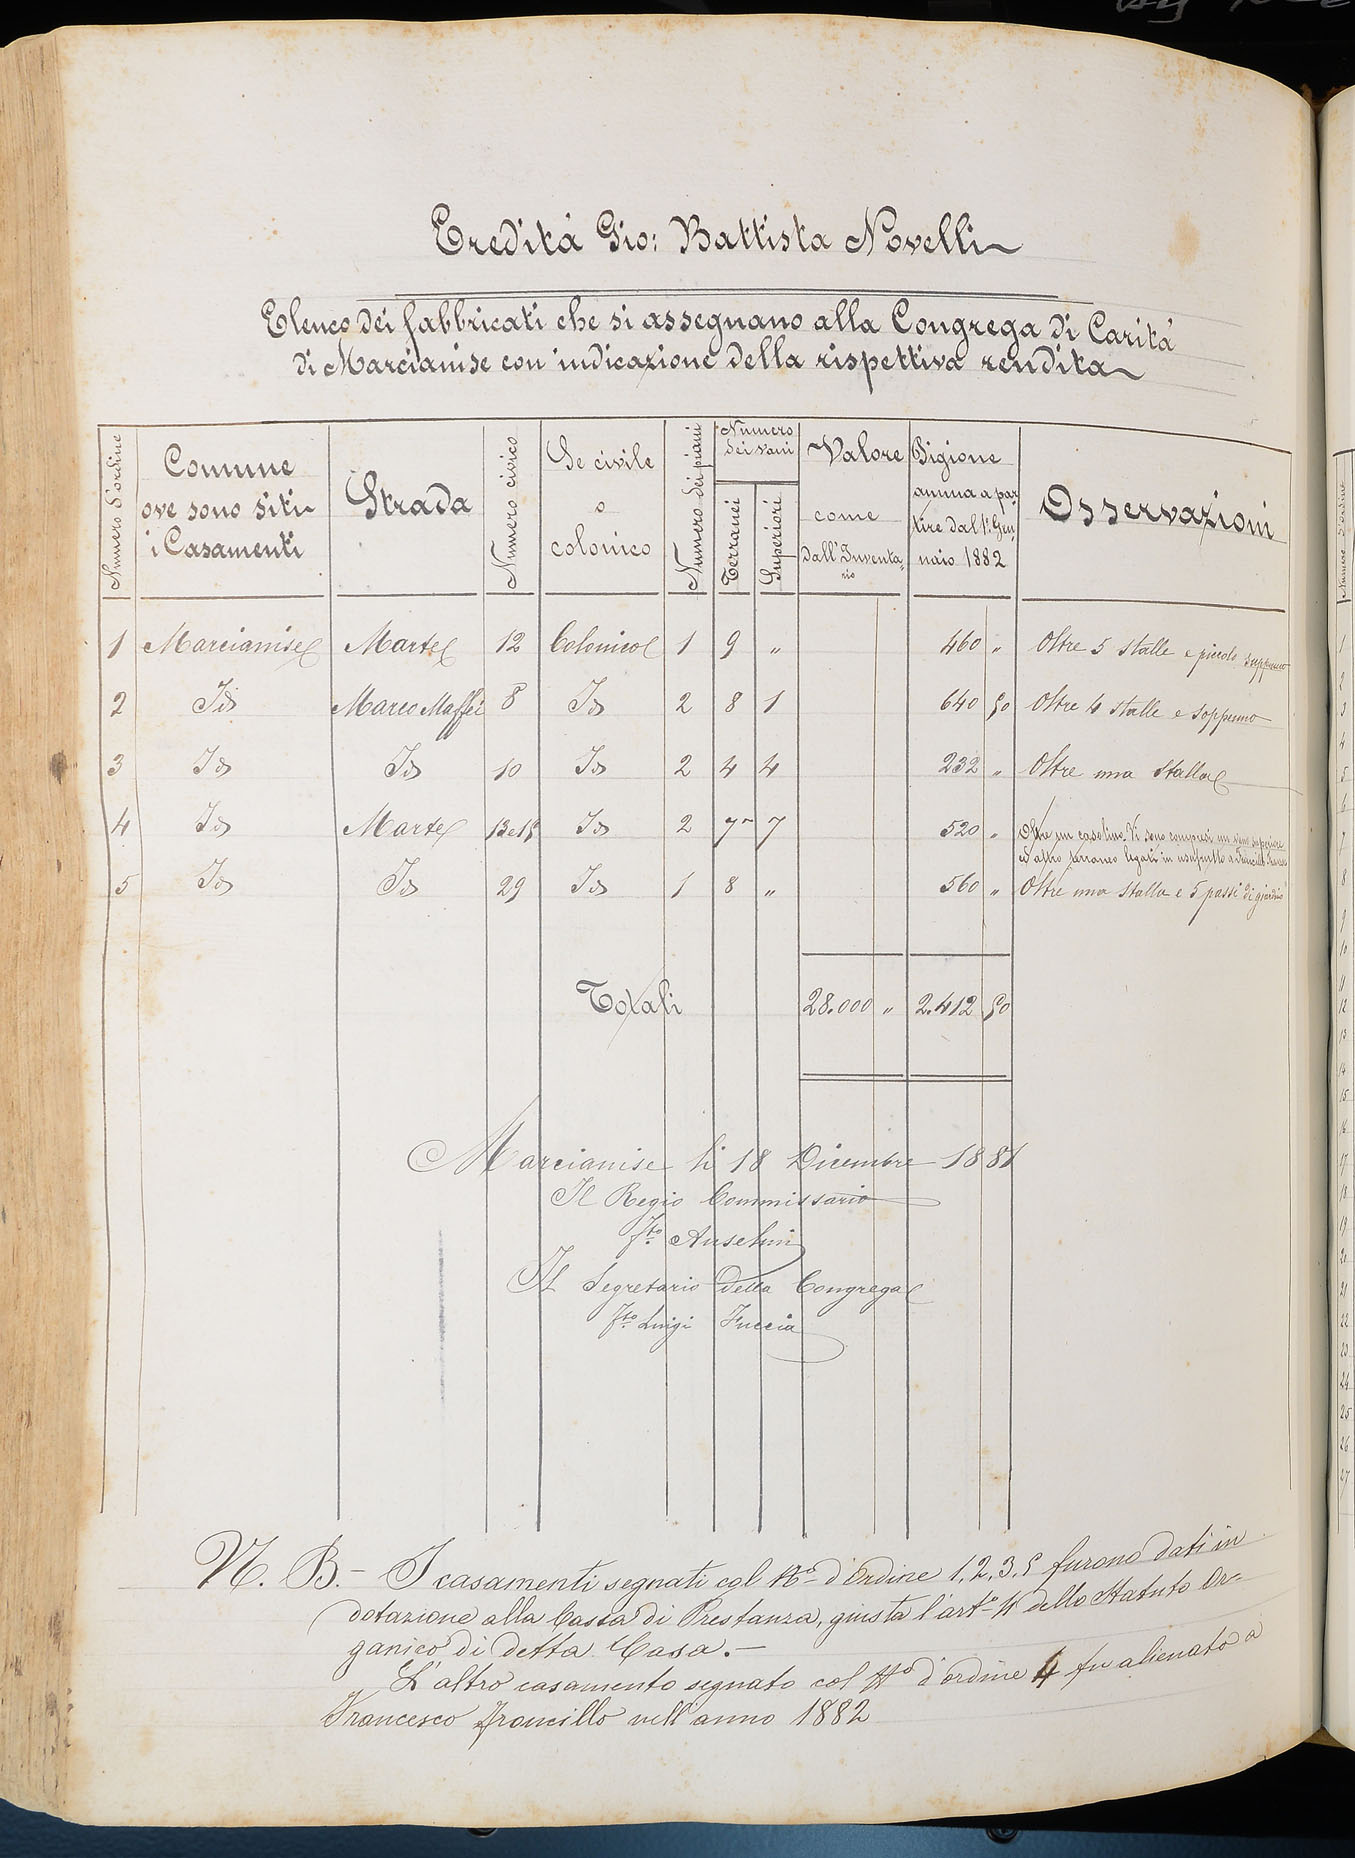 Eredità Gio: Battista Novelli
Elenco dei fabbricati che si assegnano alla Congrega di Carità
di Marcianise con indicazione della rispettiva rendita
Numero d'ordine | Comune ove sono siti i Casamenti | Strada | Numero civico | Se civile o colonico | Numero dei piani | Numero dei vani Terranei | Superiori | Valore come dall'Inventario | Pigione annua a partire dal 1° Gennaio 1882 | Osservazioni
1 Marcianise Marte 12 Colonico 1 9 " 460 " Oltre 5 stalle e piccolo suppenno
2 Id Marco Maffei 8 Id 2 8 1 640 50 Oltre 4 stalle e soppenno
3 Id Id 10 Id 2 4 4 232 " Oltre una stalla
4 Id Marte 13 e 15 Id 2 7 7 520 " Oltre un casolino. Vi sono compresi un vano superiore
ed altro terraneo legati in usufrutto a
5 Id Id 29 Id 1 8 " 560 " Oltre una stalla e 5 passi di giardino
Totali 28.000 " 2.412 50
Marcianise li 18 Dicembre 1881
Il Regio Commissario
fto Anselmi
Il Segretario della Congrega
fto Luigi Fuccia
N. B. - I casamenti segnati col No d'Ordine 1, 2, 3, 5 furono dati in
dotazione alla Cassa di Prestanza, giusta l'arto 4 dello Statuto Or=
ganico di detta Casa. -
L'altro casamento segnato col No d'ordine 4 fu alienato a
Francesco Froncillo nell'anno 1882